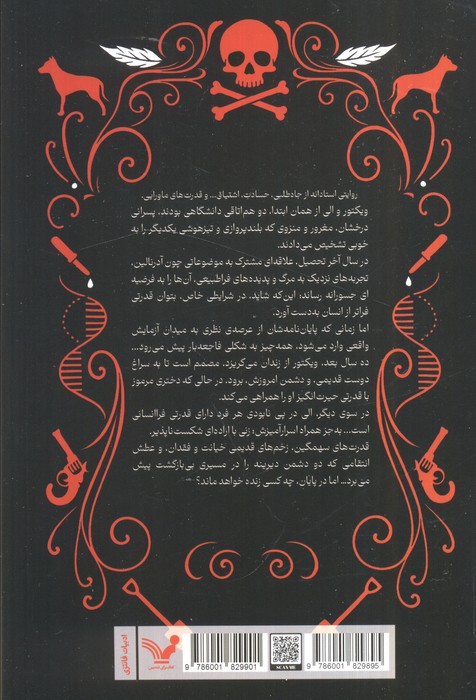 روایتی استادانه از جاه‌طلبی، حسادت، اشتیاق... و قدرت‌های ماورایی.
ویکتور و الی از همان ابتدا، دو هم‌اتاقی دانشگاهی بودند، پسرانی
درخشان، مغرور و منزوی که بلندپروازی و تیزهوشی یکدیگر را به
خوبی تشخیص می‌دادند.
در سال آخر تحصیل، علاقه‌ای مشترک به موضوعاتی چون آدرنالین،
تجربه‌های نزدیک به مرگ و پدیده‌های فراطبیعی، آن‌ها را به فرضیه
ای جسورانه رساند؛ این‌که شاید، در شرایطی خاص، بتوان قدرتی
فراتر از انسان به‌دست آورد.
اما زمانی که پایان‌نامه‌شان از عرصه‌ی نظری به میدان آزمایش
واقعی وارد می‌شود، همه‌چیز به شکلی فاجعه‌بار پیش می‌رود...
ده سال بعد، ویکتور از زندان می‌گریزد، مصمم است تا به سراغ
دوست قدیمی، و دشمن امروزش، برود. در حالی که دختری مرموز
با قدرتی حیرت‌انگیز او را همراهی می‌کند.
در سوی دیگر، الی در پی نابودی هر فرد دارای قدرتی فراانسانی
است... به‌جز همراه اسرارآمیزش؛ زنی با اراده‌ای شکست ناپذیر.
قدرت‌های سهمگین، زخم‌های قدیمی خیانت و فقدان، و عطش
انتقامی که دو دشمن دیرینه را در مسیری بی‌بازگشت پیش
می‌برد... اما در پایان، چه کسی زنده خواهد ماند؟
ادبیات فانتزی
کتابسرای تندیس
9 786001 829901
SCAN ME
9 786001 829895